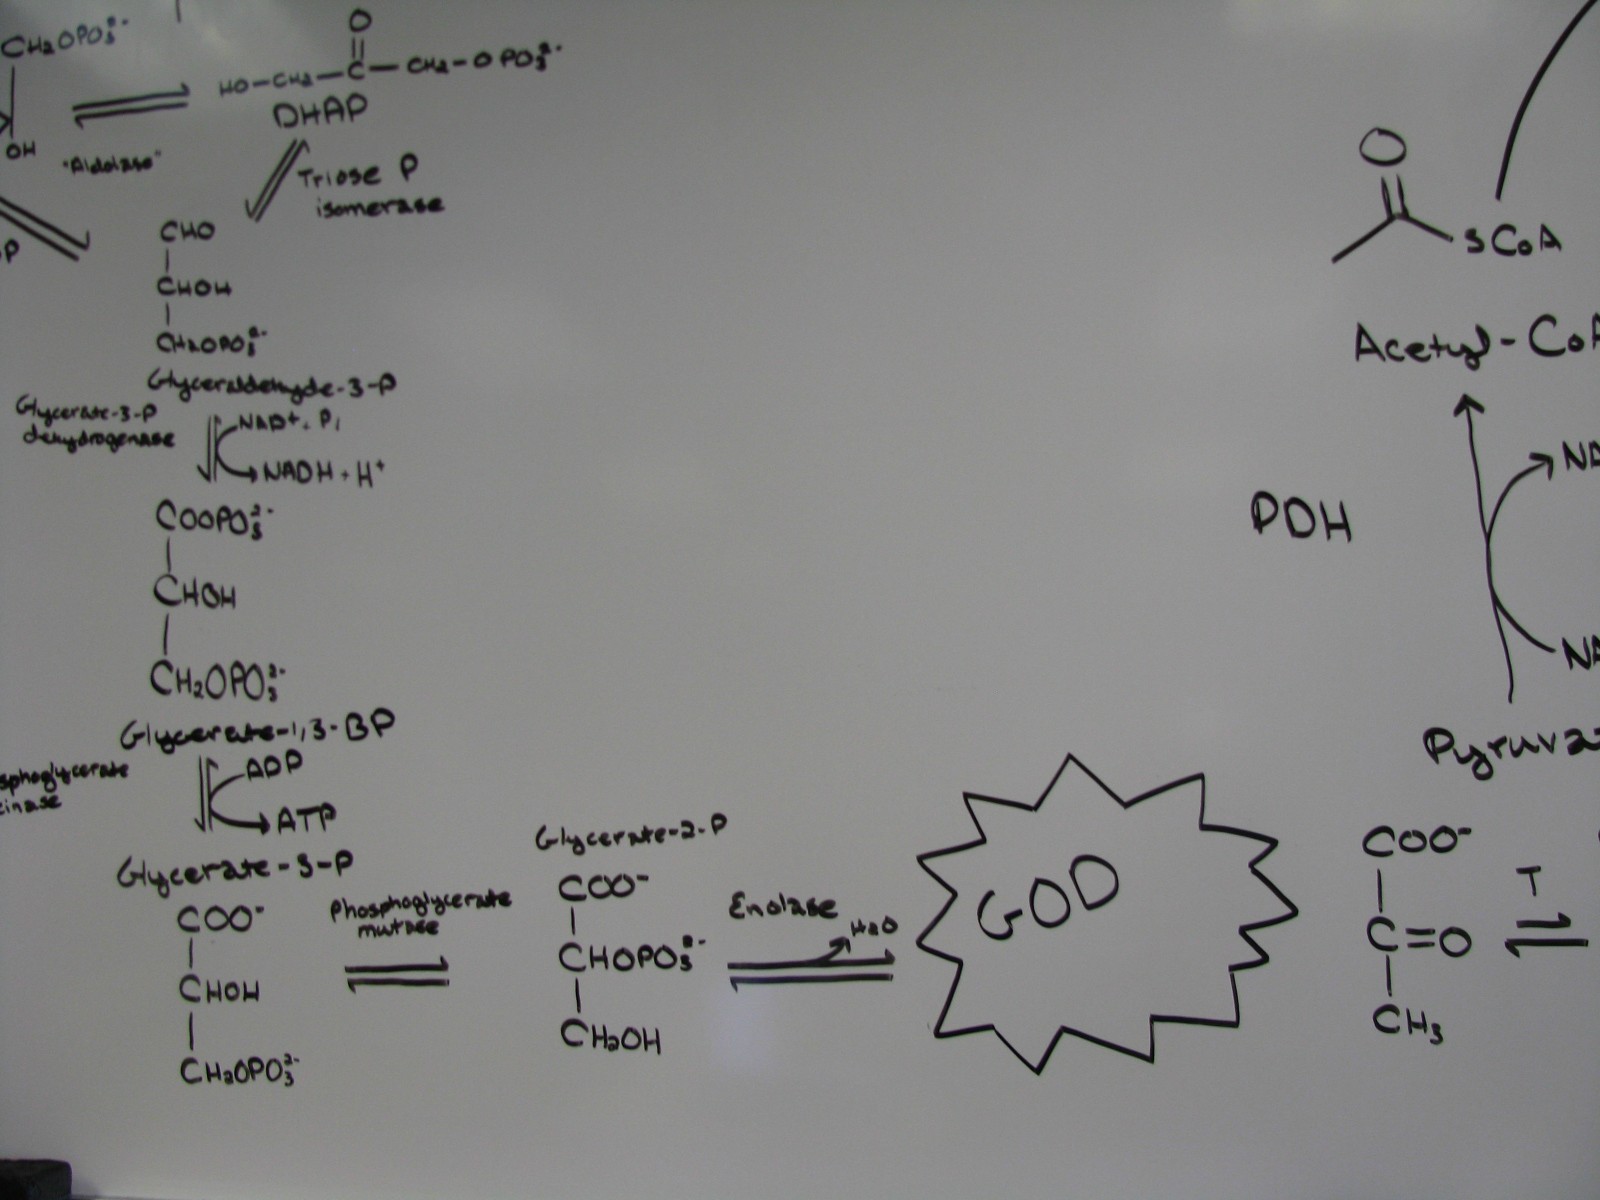 CH₂OPO₃²⁻
OH
"Aldolase"
P
O
HO-CH₂-C-CH₂-O PO₃²⁻
DHAP
Triose P
isomerase
CHO
CHOH
CH₂OPO₃²⁻
Glyceraldehyde-3-P
Glycerate-3-P
dehydrogenase
NAD⁺, Pi
NADH + H⁺
COOPO₃²⁻
CHOH
CH₂OPO₃²⁻
Glycerate-1,3-BP
sphoglycerate
kinase
ADP
ATP
Glycerate-3-P
COO⁻
CHOH
CH₂OPO₃²⁻
Phosphoglycerate
mutase
Glycerate-2-P
COO⁻
CHOPO₃²⁻
CH₂OH
Enolase
H₂O
GOD
O
SCoA
Acetyl-CoA
PDH
NA
NA
Pyruva
COO⁻
C=O
CH₃
T